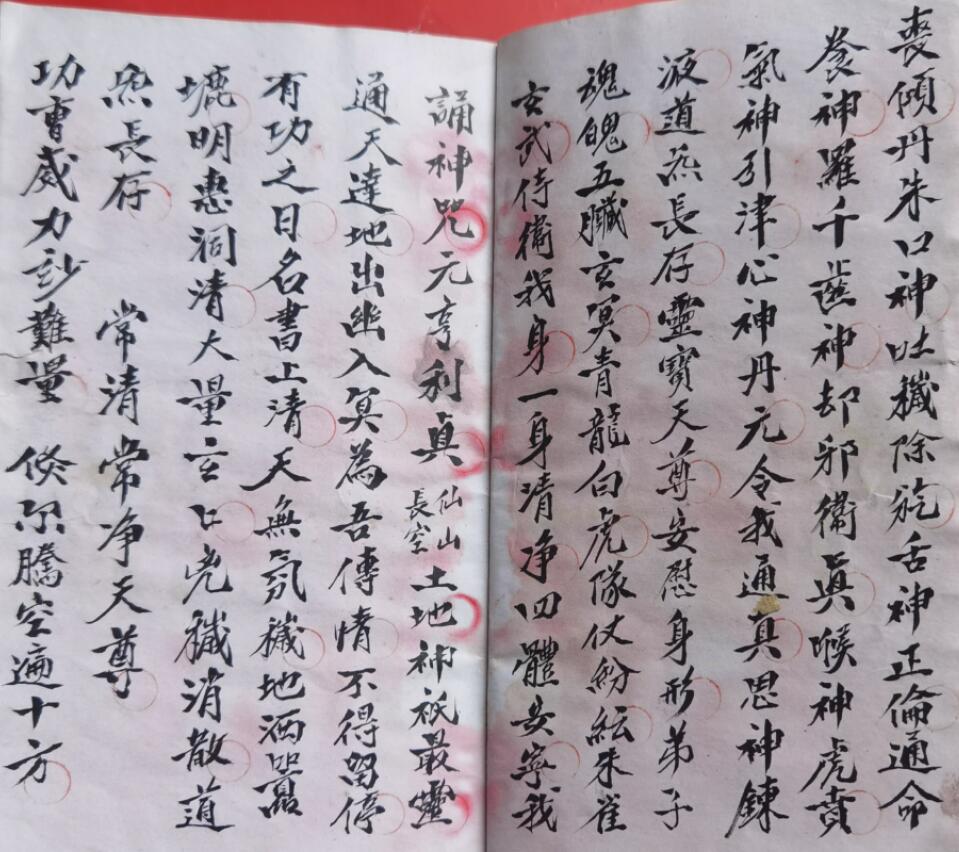 喪傾丹朱口神吐穢除氛舌神正倫通命
養神羅千齒神却邪衞眞喉神虎賁
氣神引津心神丹元令我通真思神鍊
液道炁長存靈寶天尊安慰身形弟子
魂魄五臟玄冥青龍白虎隊仗紛紜朱雀
玄武侍衞我身一身清净四體安寧我
誦神咒元亨利貞仙山長空土地神祇最靈
通天達地出幽入冥為吾傳情不得留停
有功之日名書上清天無氛穢地洒囂
塵明惠洞清大量玄口兇穢消散道
炁長存 常清常净天尊
功曹威力玅難量 倏尔騰空遍十方